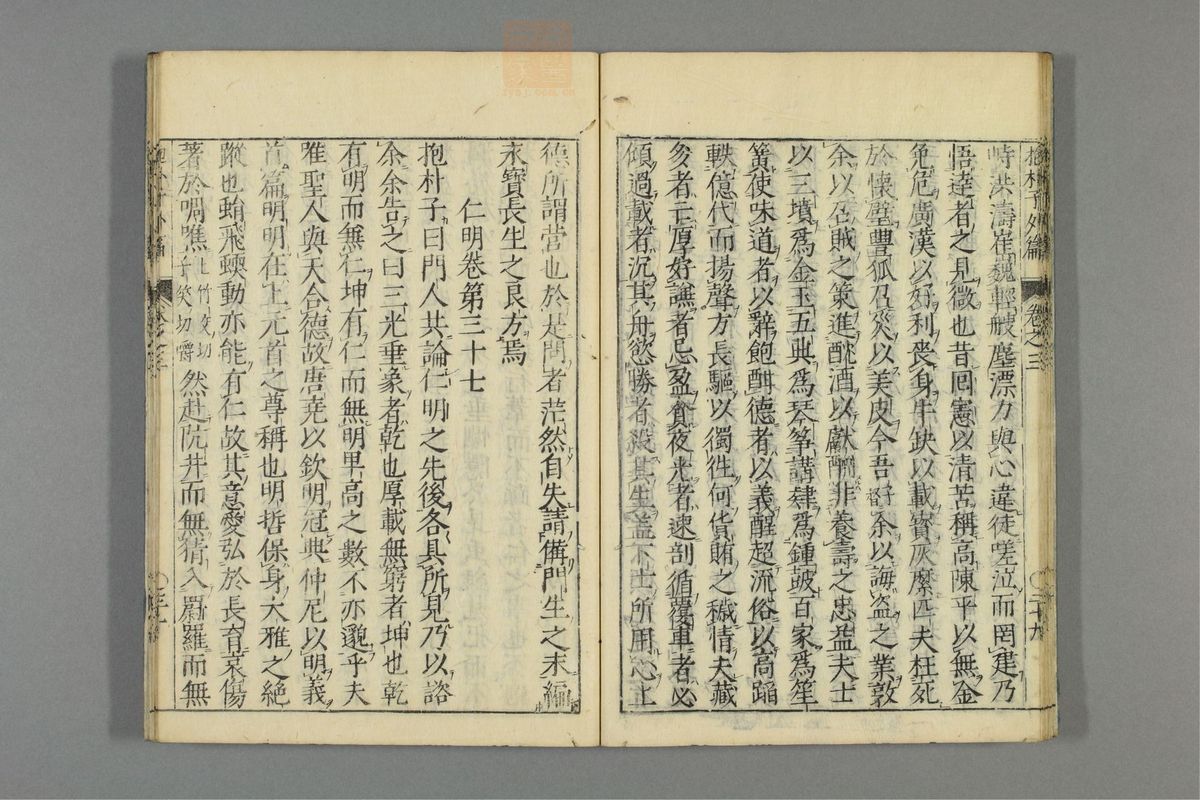 抱朴子外篇 卷之三 〇二十九
峙洪濤崔巍輕艘塵漂力與心違徒嗟泣而罔逮乃
悟達者之見微也昔囘憲以清苦稱高陳平以無金
免危廣漢以好利喪身牛缺以載寶灰糜匹夫枉死
於懷璧豐狐召災以美皮今吾子督余以誨盜之業敦
余以召賊之策進酖酒以獻酬非養壽之忠益夫士
以三墳爲金玉五典爲琴箏講肄爲鍾皷百家爲笙
簧使味道者以辭飽酣德者以義醒超流俗以高蹈
軼億代而揚聲方長驅以獨徃何貨賄之穢情夫藏
多者亡厚好謙者忌盈貪夜光者速剖循覆車者必
傾過載者沉其舟慾勝者殺其生盖下士所用心上
德所謂營也於是問者茫然自失請備門生之末編
永寶長生之良方焉
仁明卷第三十七
抱朴子曰門人共論仁明之先後各具所見乃以諮
余余告之曰三光垂象者乾也厚載無窮者坤也乾
有明而無仁坤有仁而無明卑高之數不亦邈乎夫
唯聖人與天合德故唐堯以欽明冠典仲尼以明義
首篇明明在上元首之尊稱也明哲保身大雅之絶
蹤也蛕飛蝡動亦能有仁故其意愛弘於長育哀傷
著於啁噍上竹交切下子笑切嚼然赴阬井而無猜入罻羅而無